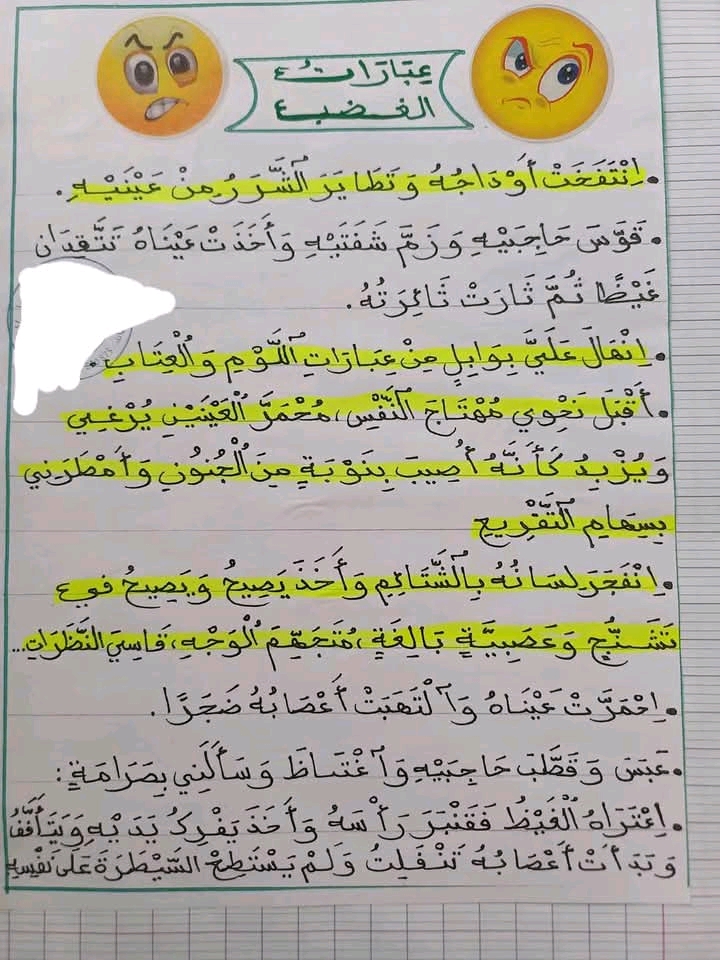 عِبَارَاتُ
الغَضَبِ
. اِنْتَفَخَتْ أَوْدَاجُهُ وَتَطَايَرَ الشَّرَرُ مِنْ عَيْنَيْهِ.
. قَوَّسَ حَاجِبَيْهِ وَزَمَّ شَفَتَيْهِ وَأَخَذَتْ عَيْنَاهُ تَتَّقِدَانِ
غَيْظًا ثُمَّ ثَارَتْ ثَائِرَتُهُ.
. اِنْهَالَ عَلَيَّ بِوَابِلٍ مِنْ عِبَارَاتِ اللَّوْمِ وَالْعِتَابِ.
. أَقْبَلَ نَحْوِي مُهْتَاجَ النَّفْسِ، مُحْمَرَّ الْعَيْنَيْنِ يُرْغِي
وَيُزْبِدُ كَأَنَّهُ أُصِيبَ بِنَوْبَةٍ مِنَ الْجُنُونِ وَأَمْطَرَنِي
بِسِهَامِ التَّقْرِيعِ
. اِنْفَجَرَ لِسَانُهُ بِالشَّتَائِمِ وَأَخَذَ يَصِيحُ وَيَصِيحُ فِي
تَشَنُّجٍ وَعَصَبِيَّةٍ بَالِغَةٍ، مُتَجَهِّمَ الْوَجْهِ، قَاسِيَ النَّظَرَاتِ...
. اِحْمَرَّتْ عَيْنَاهُ وَالْتَهَبَتْ أَعْصَابُهُ ضَجَرًا.
. عَبَسَ وَقَطَّبَ حَاجِبَيْهِ وَاغْتَاظَ وَسَأَلَنِي بِصَرَامَةٍ:
. اِعْتَرَاهُ الْغَيْظُ رَأْسَهُ وَأَخَذَ يَفْرِكُ يَدَيْهِ وَيَتَأَفَّفُ
وَبَدَأَتْ أَعْصَابُهُ تَنْفَلِتُ وَلَمْ يَسْتَطِعْ السَّيْطَرَةَ عَلَى نَفْسِهِ